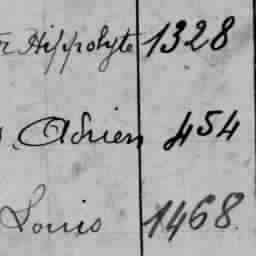 Hippolyte 1328
Adrien 454
Louis 1468